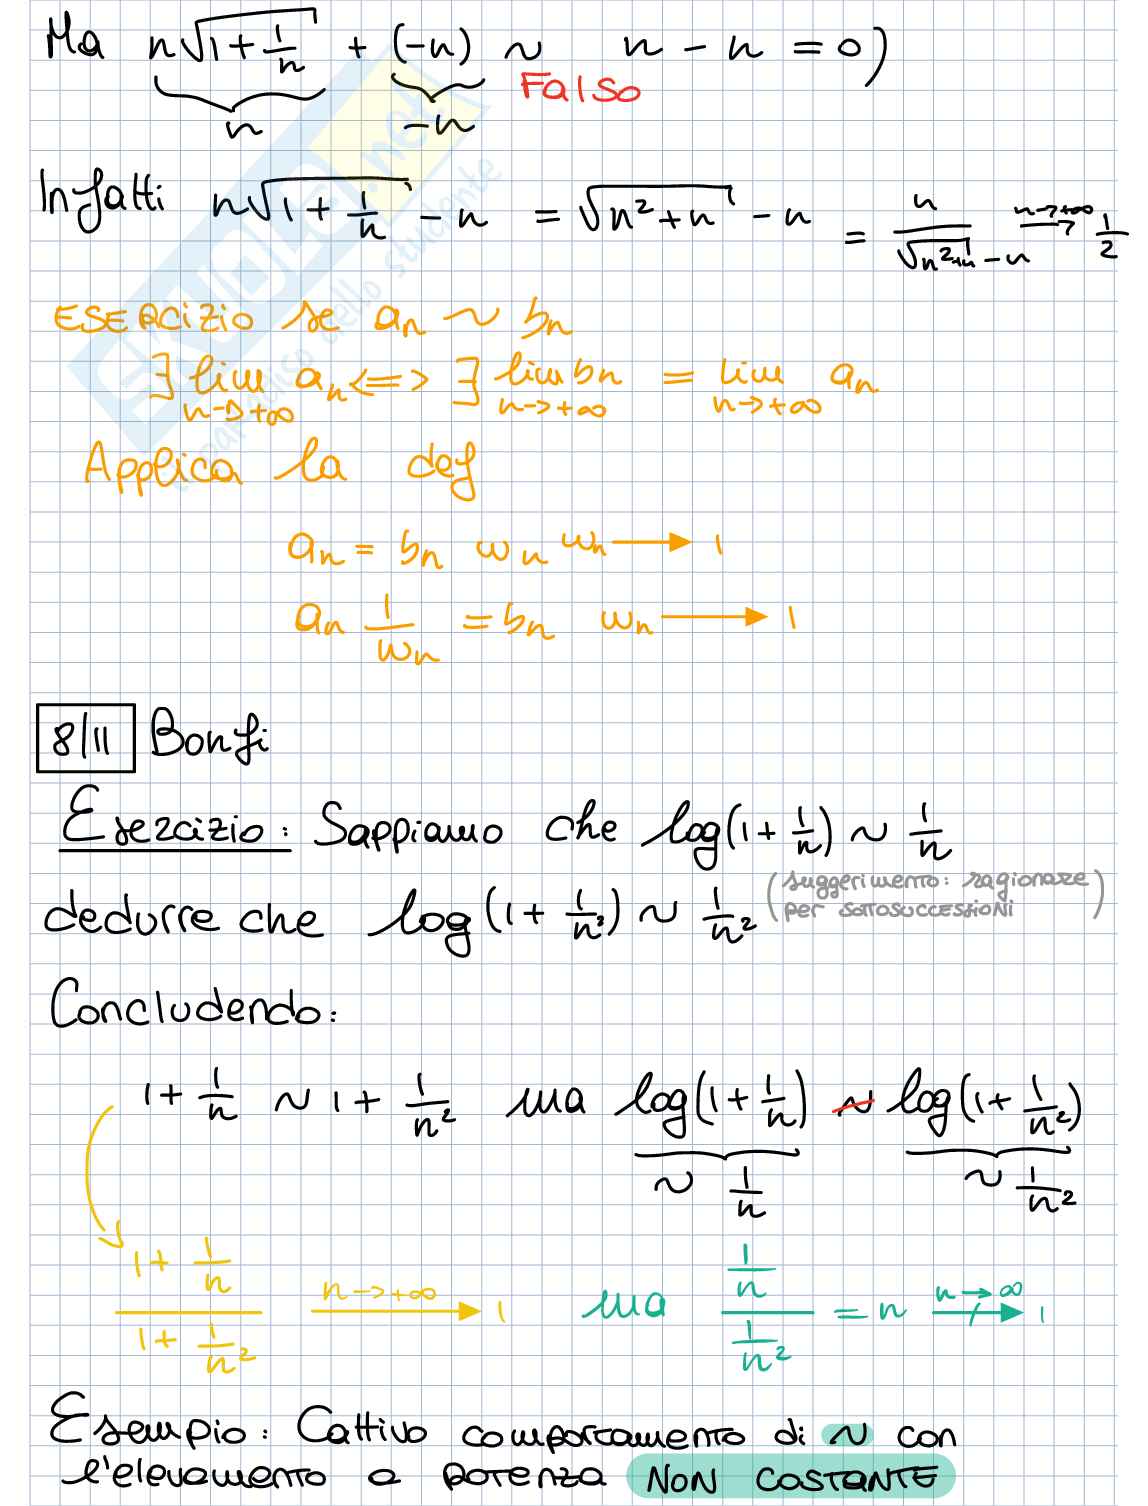 Ma n√(1 + 1/n) + (-n) ~ n - n = 0)
n -n Falso
Infatti n√(1 + 1/n) - n = √(n² + n) - n = n/(√(n²+n) - n) n→+∞ → 1/2
ESERCIZIO se aₙ ~ bₙ
∃ lim n→+∞ aₙ <=> ∃ lim n→+∞ bₙ = lim n→+∞ aₙ
Applica la def
aₙ = bₙ ωₙ ωₙ → 1
aₙ 1/ωₙ = bₙ ωₙ → 1
8/11 Bonfi
Esercizio: Sappiamo che log(1 + 1/n) ~ 1/n
dedurre che log(1 + 1/n²) ~ 1/n² (suggerimento: ragionare
per sottosuccessioni)
Concludendo:
1 + 1/n ~ 1 + 1/n² ma log(1 + 1/n) ≁ log(1 + 1/n²)
~ 1/n ~ 1/n²
(1 + 1/n)/(1 + 1/n²) n→+∞ → 1 ma (1/n)/(1/n²) = n n→∞ ↛ 1
Esempio: Cattivo comportamento di ~ con
l'elevamento a potenza NON COSTANTE
SKUOLA.net
il paradiso dello studente